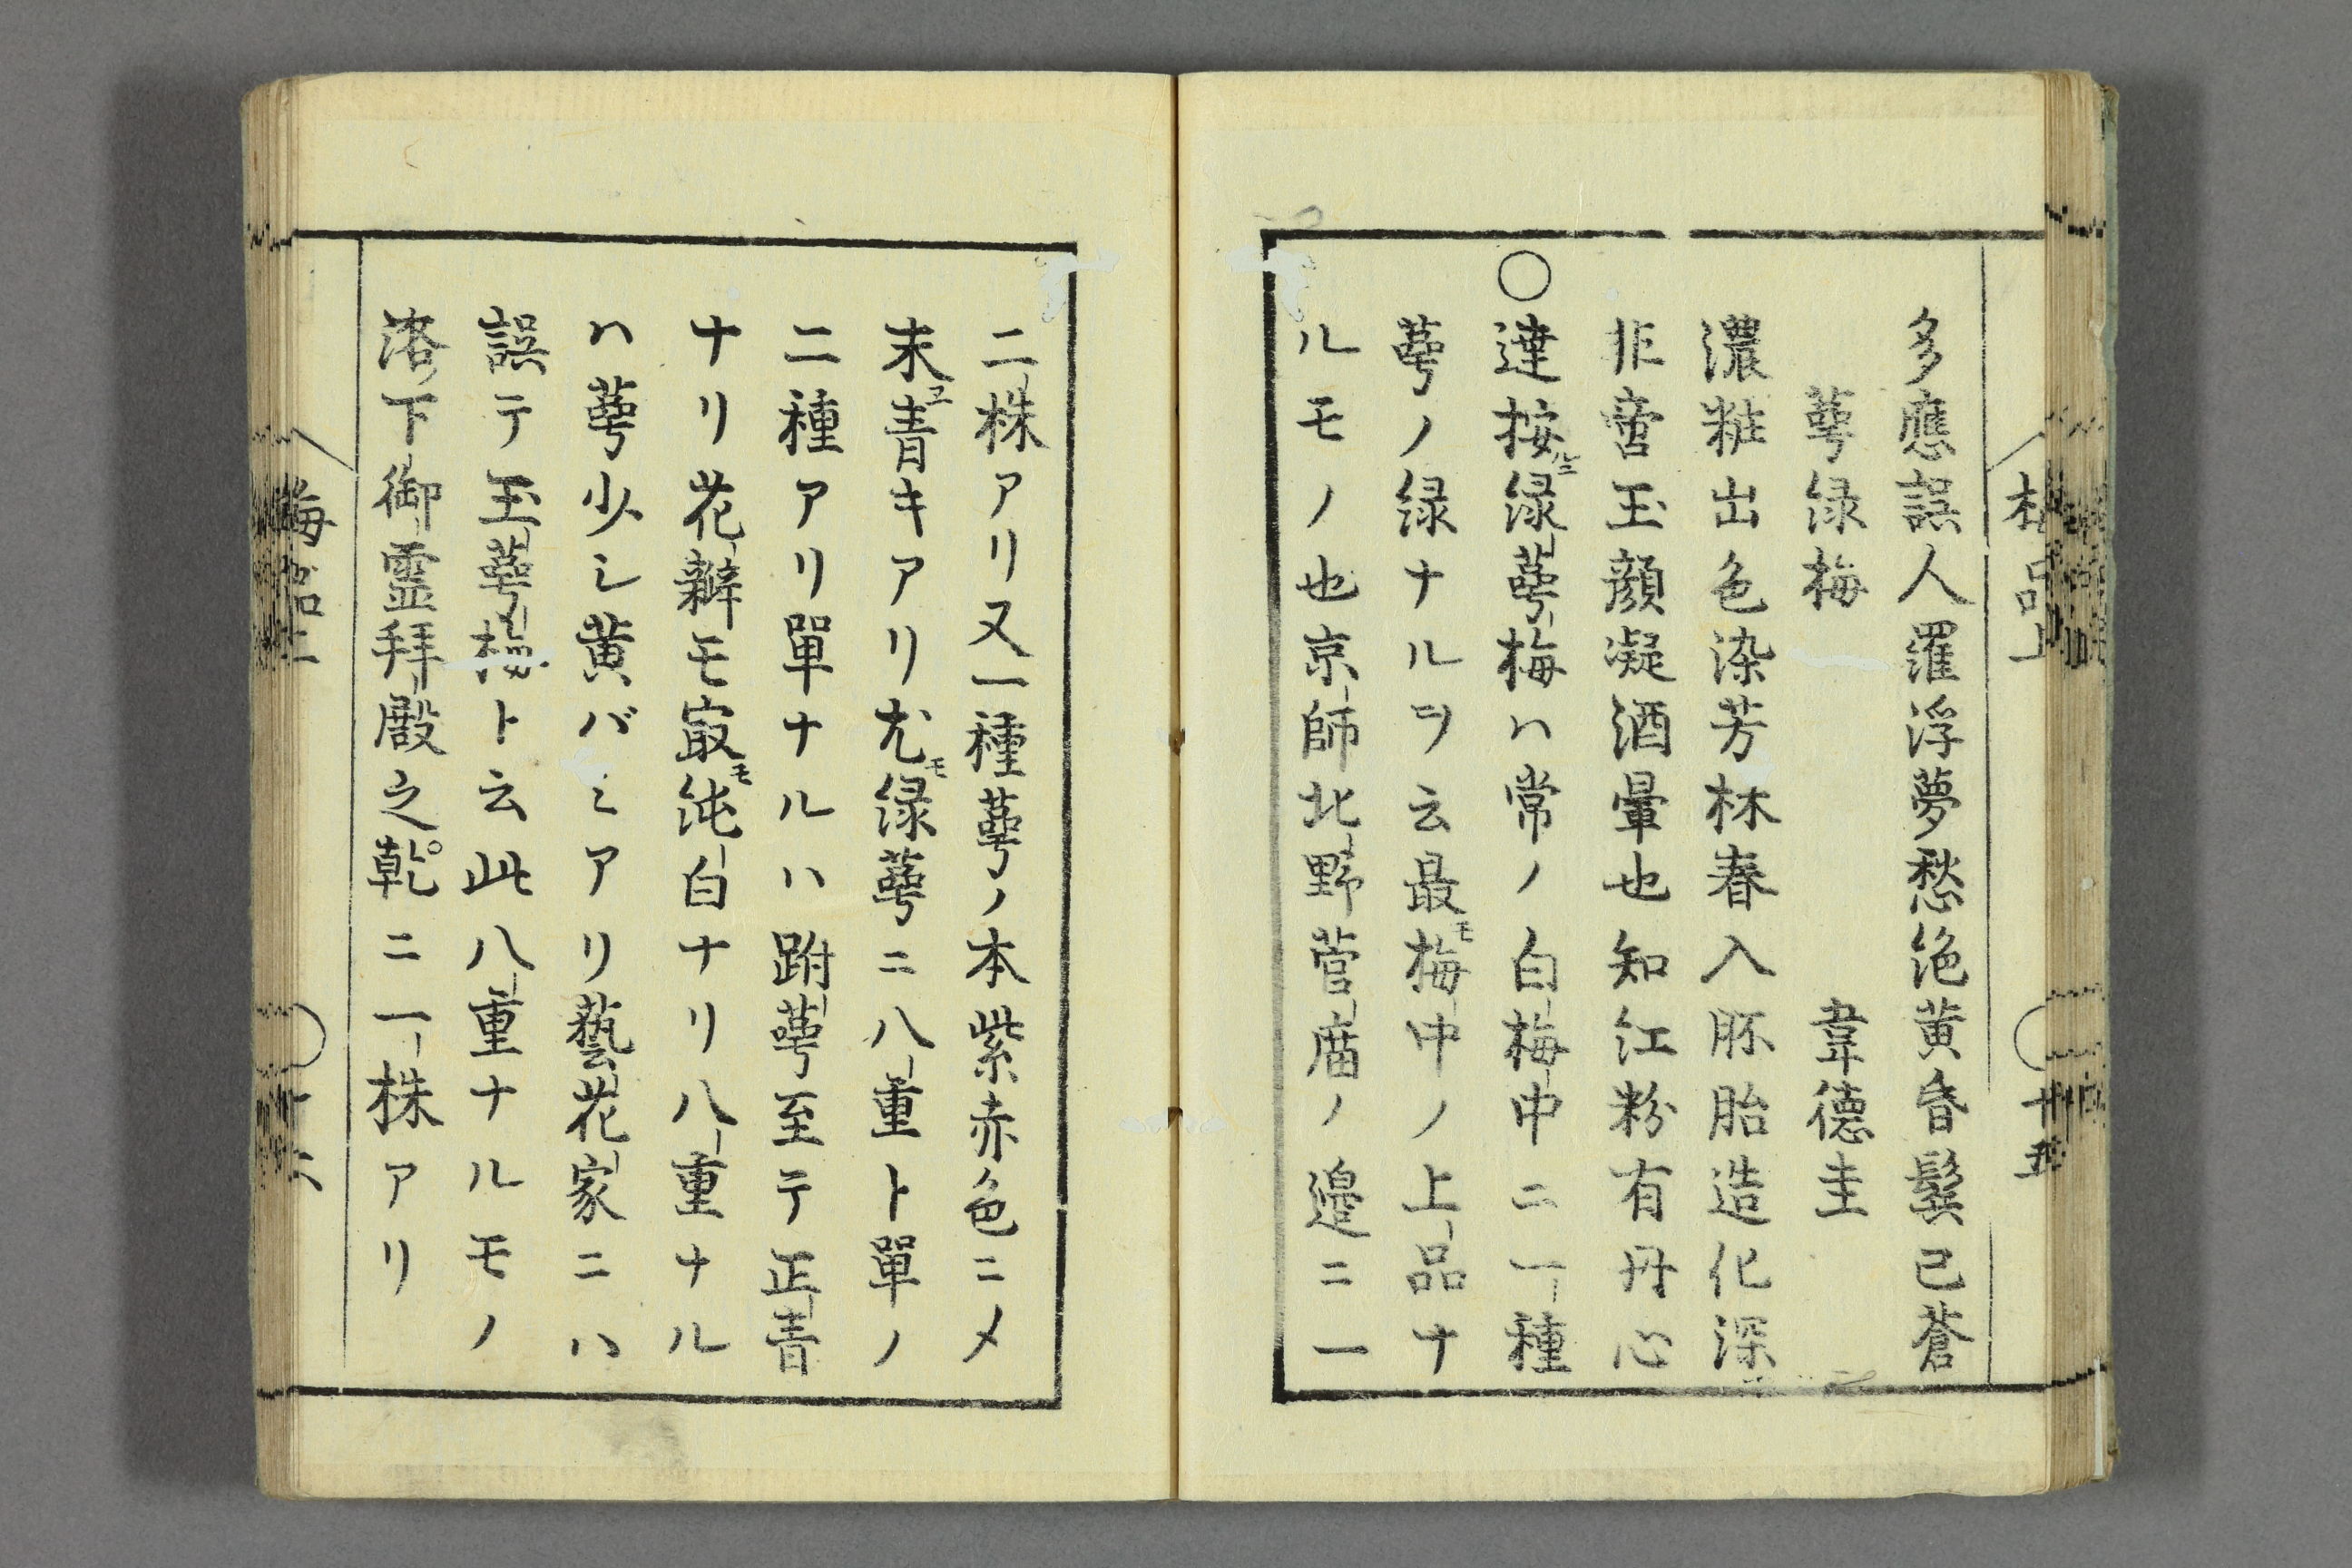 多應誤人羅浮夢愁絶黄昏鬂已蒼
萼緑梅　韋德圭
濃粧出色染芳林春入胚胎造化深
非啻玉顔凝酒暈也知江粉有丹心
○達按緑萼梅ハ常ノ白梅中ニ一種
萼ノ緑ナルヲ云最モ梅中ノ上品ナ
ルモノ也京師北野菅廟ノ邉ニ一
二株アリ又一種萼ノ本紫赤色ニメ
末青キアリ尤モ緑萼ニ八重ト單ノ
二種アリ單ナルハ跗萼至テ正青
ナリ花辨モ㝡モ純白ナリ八重ナル
ハ萼少シ黄バミアリ藝花家ニハ
誤テ玉萼梅ト云此八重ナルモノ
洛下御霊拜殿之乾ニ一株アリ
梅品上
十五